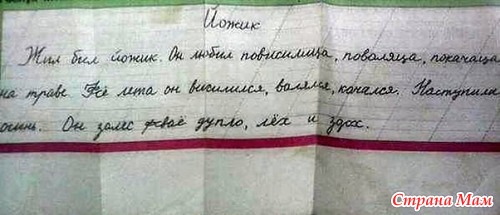 Йожик
Жил был йожик. Он любил повисилица, поваляца, покачаца
на траве Fсё лета он висилился, валялся, качался. Наступила
осинь. Он залес фсваё дупло, лёх и здох.
Страна Мам